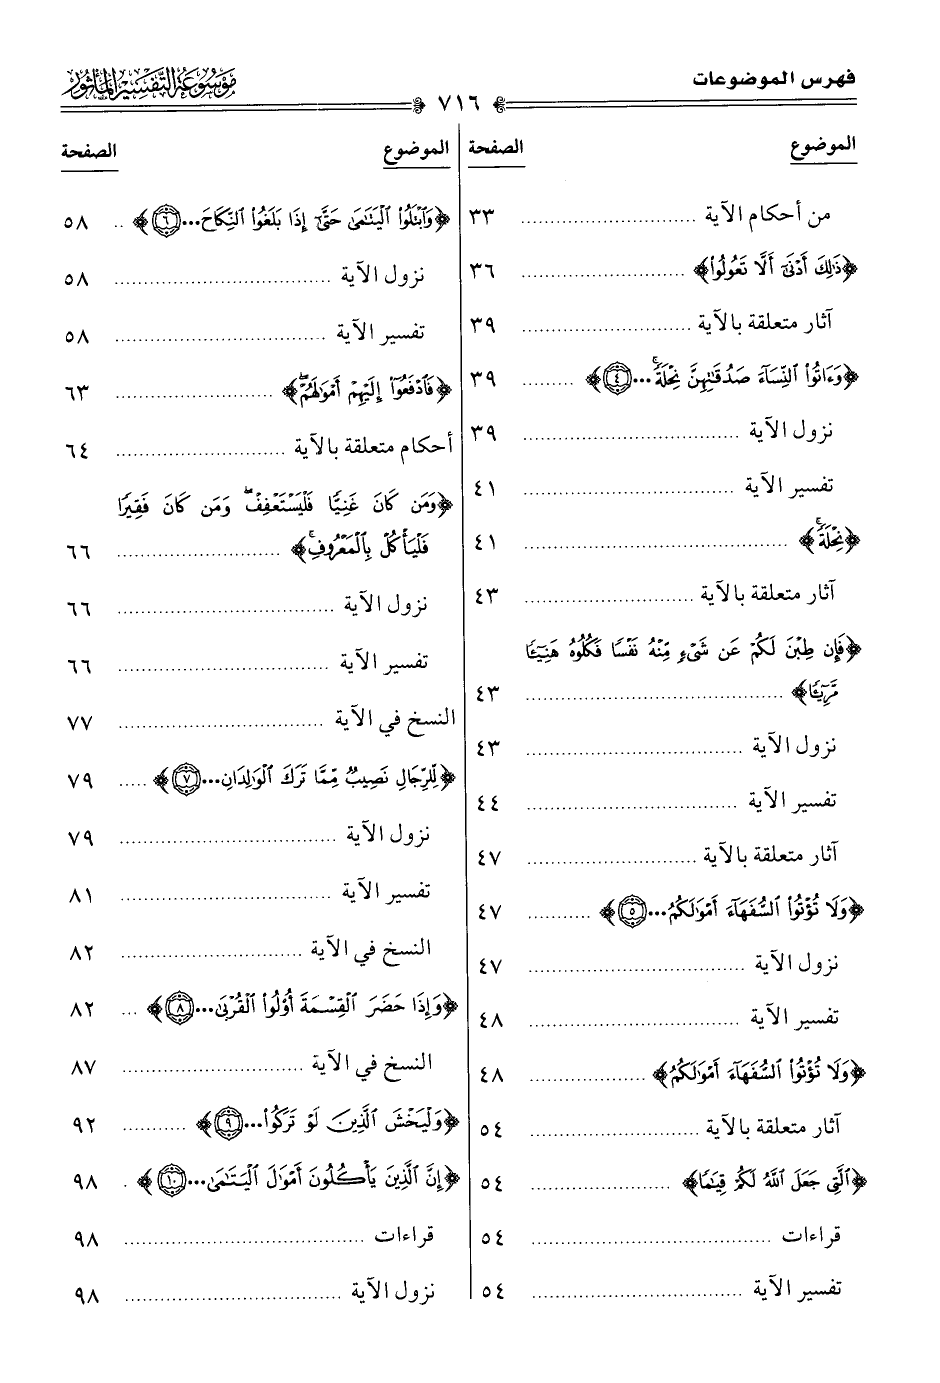 فهرس الموضوعات
٧١٦
موسوعة التفسير المأثور
الموضوع الصفحة
من أحكام الآية ........................ ٣٣
﴿ذَٰلِكَ أَدْنَىٰٓ أَلَّا تَعُولُوا۟﴾ ........................ ٣٦
آثار متعلقة بالآية ........................ ٣٩
﴿وَءَاتُوا۟ ٱلنِّسَآءَ صَدُقَـٰتِهِنَّ نِحْلَةًۚ...٤﴾ .......... ٣٩
نزول الآية ........................ ٣٩
تفسير الآية ........................ ٤١
﴿نِحْلَةًۚ﴾ ........................ ٤١
آثار متعلقة بالآية ........................ ٤٣
﴿فَإِن طِبْنَ لَكُمْ عَن شَىْءٍ مِّنْهُ نَفْسًا فَكُلُوهُ هَنِيٓـًٔا
مَّرِيٓـًٔا﴾ ........................ ٤٣
نزول الآية ........................ ٤٣
تفسير الآية ........................ ٤٤
آثار متعلقة بالآية ........................ ٤٧
﴿وَلَا تُؤْتُوا۟ ٱلسُّفَهَآءَ أَمْوَٰلَكُمُ...٥﴾ .......... ٤٧
نزول الآية ........................ ٤٧
تفسير الآية ........................ ٤٨
﴿وَلَا تُؤْتُوا۟ ٱلسُّفَهَآءَ أَمْوَٰلَكُمُ﴾ ................ ٤٨
آثار متعلقة بالآية ........................ ٥٤
﴿ٱلَّتِى جَعَلَ ٱللَّهُ لَكُمْ قِيَـٰمًا﴾ .................... ٥٤
قراءات ........................ ٥٤
تفسير الآية ........................ ٥٤
الموضوع الصفحة
﴿وَٱبْتَلُوا۟ ٱلْيَتَـٰمَىٰ حَتَّىٰٓ إِذَا بَلَغُوا۟ ٱلنِّكَاحَ...٦﴾ .. ٥٨
نزول الآية ........................ ٥٨
تفسير الآية ........................ ٥٨
﴿فَٱدْفَعُوٓا۟ إِلَيْهِمْ أَمْوَٰلَهُمْۖ﴾ .................... ٦٣
أحكام متعلقة بالآية ........................ ٦٤
﴿وَمَن كَانَ غَنِيًّا فَلْيَسْتَعْفِفْۖ وَمَن كَانَ فَقِيرًا
فَلْيَأْكُلْ بِٱلْمَعْرُوفِۚ﴾ ........................ ٦٦
نزول الآية ........................ ٦٦
تفسير الآية ........................ ٦٦
النسخ في الآية ........................ ٧٧
﴿لِّلرِّجَالِ نَصِيبٌ مِّمَّا تَرَكَ ٱلْوَٰلِدَانِ...٧﴾ ..... ٧٩
نزول الآية ........................ ٧٩
تفسير الآية ........................ ٨١
النسخ في الآية ........................ ٨٢
﴿وَإِذَا حَضَرَ ٱلْقِسْمَةَ أُو۟لُوا۟ ٱلْقُرْبَىٰ...٨﴾ ... ٨٢
النسخ في الآية ........................ ٨٧
﴿وَلْيَخْشَ ٱلَّذِينَ لَوْ تَرَكُوا۟...٩﴾ .......... ٩٢
﴿إِنَّ ٱلَّذِينَ يَأْكُلُونَ أَمْوَٰلَ ٱلْيَتَـٰمَىٰ...١٠﴾ . ٩٨
قراءات ........................ ٩٨
نزول الآية ........................ ٩٨